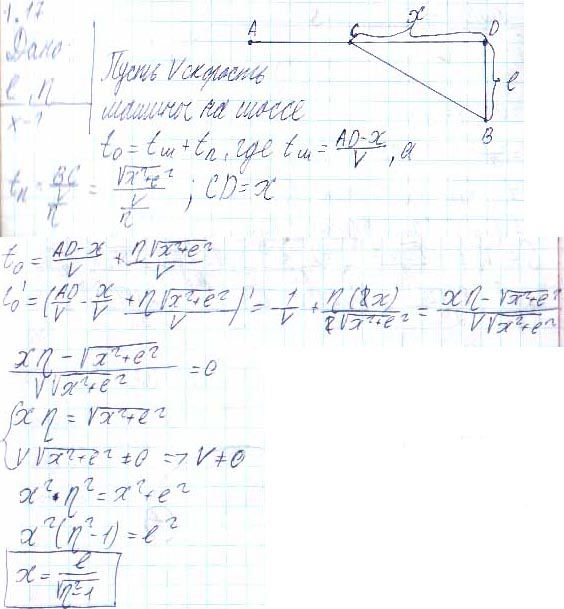 1.17
Дано:
l, η
x-?
A C x D
l
B
Пусть V скорость
машины на шоссе
t₀ = tш + tп, где tш = (AD-x)/V, а
tп = BC/(V/η) = √(x²+l²)/(V/η); CD = x
t₀ = (AD-x)/V + η√(x²+l²)/V
t₀' = (AD/V - x/V + η√(x²+l²)/V)' = 1/V + η(2x)/(2√(x²+l²)) = (xη-√(x²+l²))/(V√(x²+l²))
(xη-√(x²+l²))/(V√(x²+l²)) = 0
{ xη = √(x²+l²)
V√(x²+l²) ≠ 0 => V ≠ 0
x²·η² = x²+l²
x²(η²-1) = l²
x = l/√(η²-1)